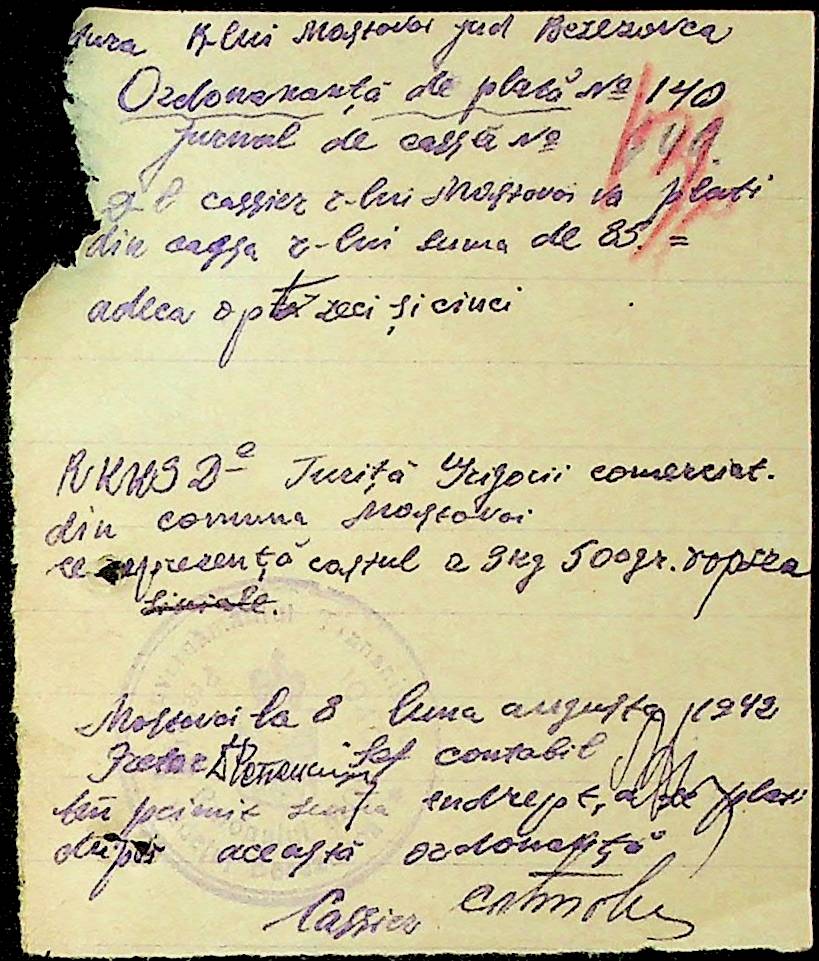 tura R-lui Mostovoi jud Berezovca
Ordonananță de plată № 140
Jurnal de cassă №
cassier r-lui Mostovoi va plati
din cassa r-lui suma de 85. =
adeca opt zeci și ciuci
RKKS Dª Juriță Grigorii comerciat.
din comuna Mostovoi
ce represență costul a 3 kg 500 gr. vopsea
Mostovoi la 8 luna augusta 1942
Pretor Șef contabil
primit suma endrept, a se plati
după această ordonanță
Cassier